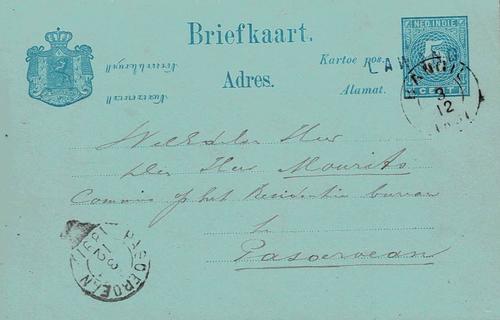 Briefkaart.
NED-INDIE
5
CENT
Kartoe pos.
LAWANG
Adres.
Alamat.
BANGIL
3
12
Weledelen Heer
Den Heer Mourits
Commies op het Residentie bureau
te
Pasoeroean
PASOEROEAN
3
12